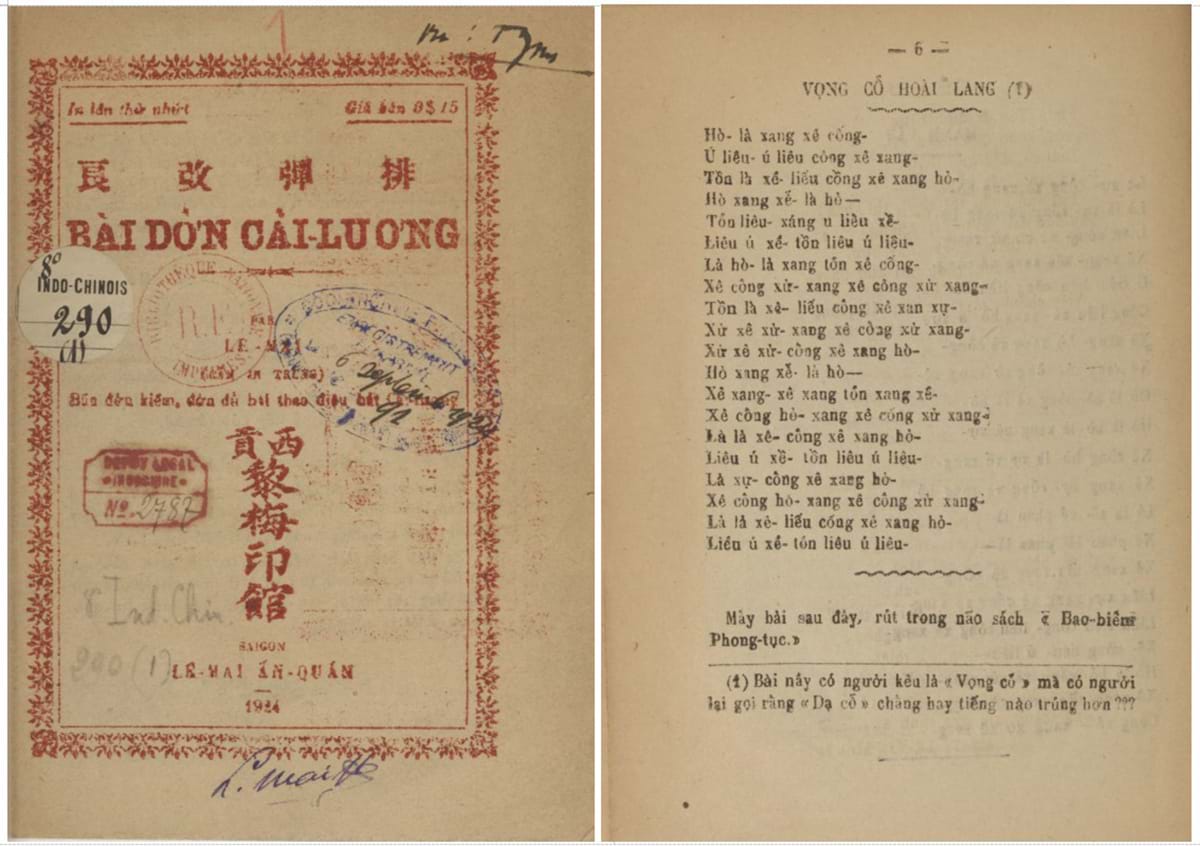 1
In lần thứ nhứt
Giá bán 0$15
良 改 彈 排
BÀI DỜN CẢI-LUONG
8°
INDO-CHINOIS
290
(1)
BIBLIOTHÈQUE NATIONALE
R.F.
PAR
LÊ-MAI
6 Septembre
Bổn đờn kiếm, đờn đủ bài theo điệu hát
貢 西
黎
梅
印
館
DEPOT LEGAL
INDOCHINE
No. 2787
8° Ind. Chin
290 (1)
SAIGON
LÊ-MAI ẤN-QUÁN
1924
— 6 —
VỌNG CỔ HOÀI LANG (1)
Hò- là xang xê cống-
Ú liêu- ú liêu công xê xang-
Tồn là xề- liếu cồng xê xang hò-
Hò xang xề- là hò—
Tồn liêu- xáng u liêu xề-
Liêu ú xề- tồn liêu ú liêu-
Là hò- là xang tón xê cống-
Xê công xừ- xang xê công xừ xang-
Tồn là xê- liếu công xê xan xự-
Xừ xê xừ- xang xê cồng xừ xang-
Xừ xê xừ- công xê xang hò-
Hò xang xề- là hò—
Xê xang- xê xang tón xang xê-
Xê công hò- xang xê cống xừ xang-
Là là xê- công xê xang hò-
Liêu ú xề- tồn liêu ú liêu-
Là xự- công xê xang hò-
Xê công hò- xang xê công xừ xang-
Là là xê- liếu cóng xê xang hò-
Liếu ú xề- tón liêu ú liêu-
Mày bài sau đây, rút trong não sách « Bao-biếm
Phong-tục.»
(1) Bài nầy có người kêu là « Vọng cổ » mà có người
lại gọi rằng « Dạ cổ » chẳng hay tiếng nào trúng hơn ???